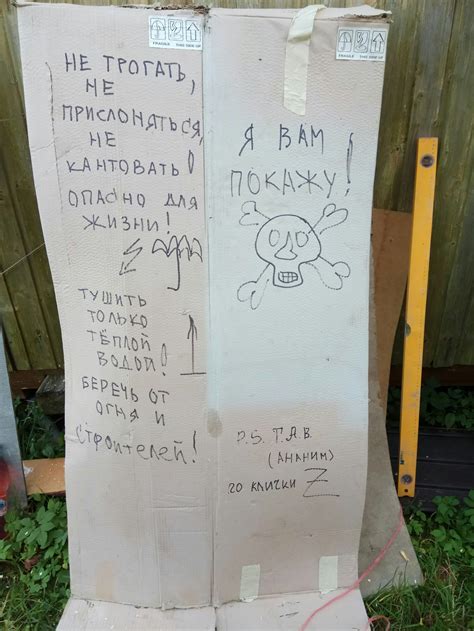 FRAGILE THIS SIDE UP
FRAGILE THIS SIDE UP
НЕ ТРОГАТЬ,
НЕ
ПРИСЛОНЯТЬСЯ,
НЕ
КАНТОВАТЬ!
ОПАСНО ДЛЯ
ЖИЗНИ!
ТУШИТЬ
ТОЛЬКО
ТЁПЛОЙ
ВОДОЙ!
БЕРЕЧЬ ОТ
ОГНЯ И
СТРОИТЕЛЕЙ!
Я ВАМ
ПОКАЖУ!
P.S. Т.А.В
(АНАНИМ)
ПО КЛИЧКИ Z